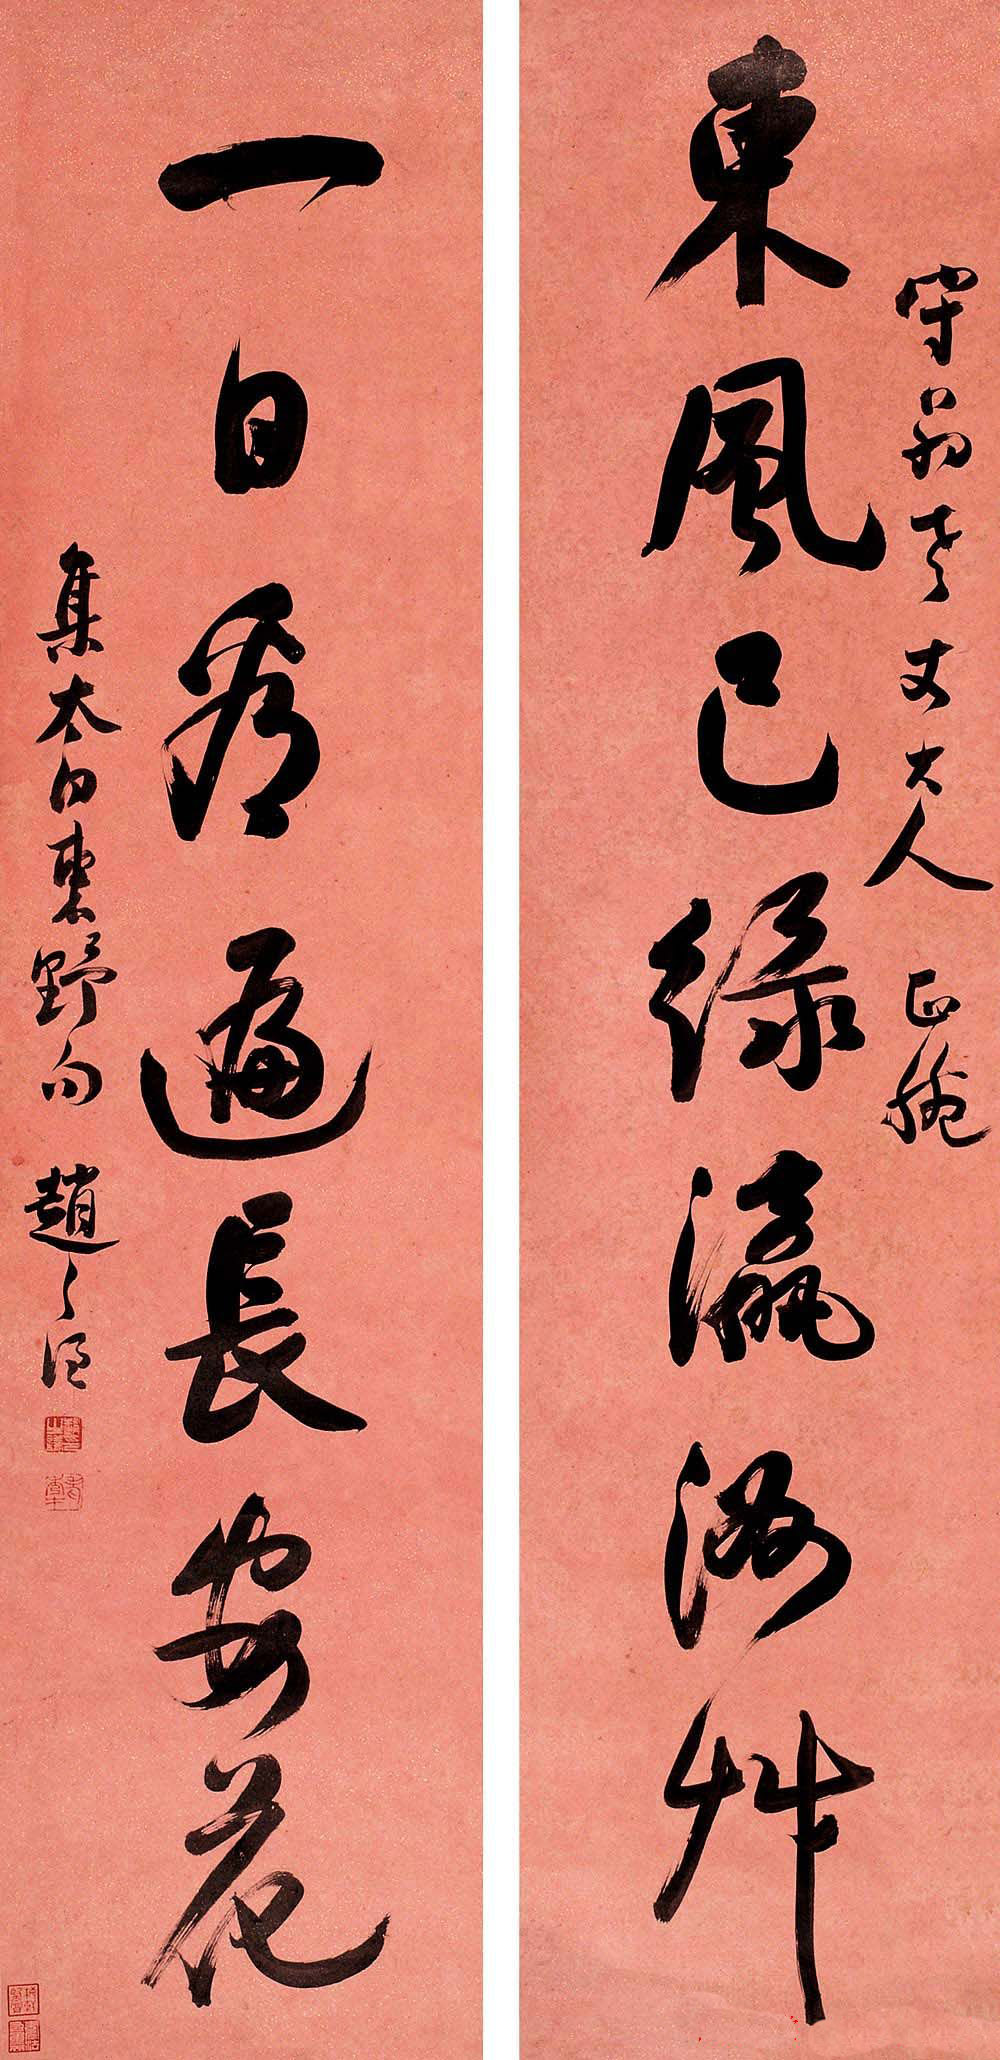 守老丈大人 正腕
東風已綠瀛洲艸
一日看遍長安花
集太白東野句 趙之